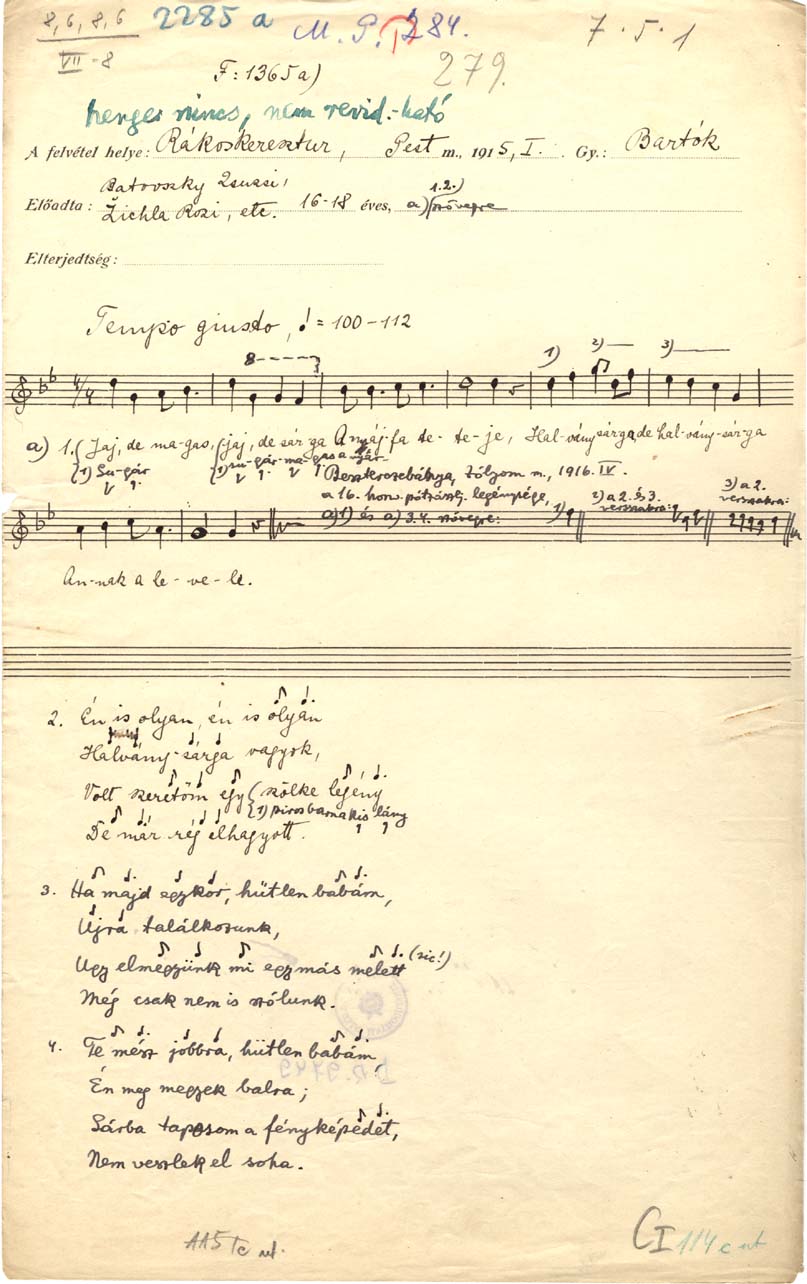 8, 6, 8, 6 2285 a M. P. I 284. 7.5.1
VII-8 F: 1365a) 279.
henger nincs, nem revid.-ható
A felvétel helye: Rákoskeresztur, Pest m., 1915, I. Gy.: Bartók
Batovszky Zsuzsi,
Előadta: Žichla Rozi, etc. 16-18 éves, a) 1.2.) szövegre
Elterjedtség:
Tempo giusto, ♩ = 100-112
8 1) 2) 3)
4/4
a) 1. Jaj, de ma-gas, jaj, de sár-ga A nyáj-fa te-te-je, Hal-vány sárga de hal-vány-sár-ga
1) Su-gár 1) su-gár ma-gas a
Beszterczebánya, Zólyom m., 1916. IV.
a 16. hon. pótzászlj. legénysége,
a) 1) és a) 3.4. szövegre: 1) 2) a 2. és 3. versszakra: 3) a 2. versszakra:
An-nak a le-ve-le.
2. Én is olyan, én is olyan
Halvány-sárga vagyok,
Volt szeretőm egy szőlke legény
1) piros barna kis lány
De már rég elhagyott.
3. Ha majd egykor, hűtlen babám,
Újra találkozunk,
Ugy elmegyünk mi egymás melett (sic!)
Még csak nem is szólunk.
4. Te mész jobbra, hűtlen babám,
Én meg megyek balra;
Sárba taposom a fényképedet,
Nem veszlek el soha.
CI 114